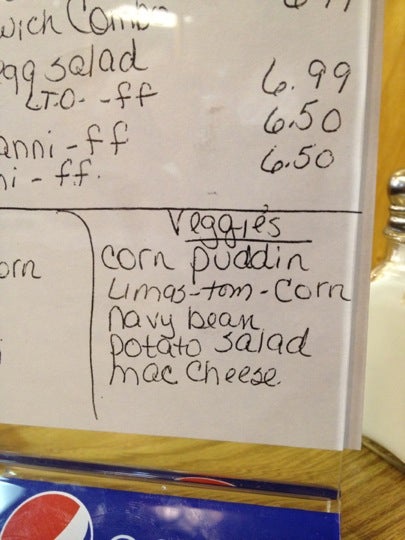 wich Combo
egg salad 6.99
LTO--ff 6.50
anni-ff 6.50
ni-ff.
Veggies
orn
corn puddin
Limas-tom-Corn
navy bean
potato salad
mac Cheese.